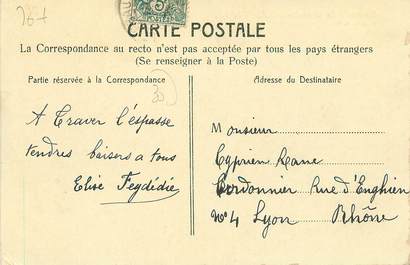 267
5
CARTE POSTALE
La Correspondance au recto n'est pas acceptée par tous les pays étrangers
(Se renseigner à la Poste)
Partie réservée à la Correspondance
Adresse du Destinataire
30
A Traver l'espasse
tendres baisers a tous
Elise Feydédié
Monsieur
Cyprien Rane
Cordonnier Rue d'Enghien
N° 4 Lyon Rhône